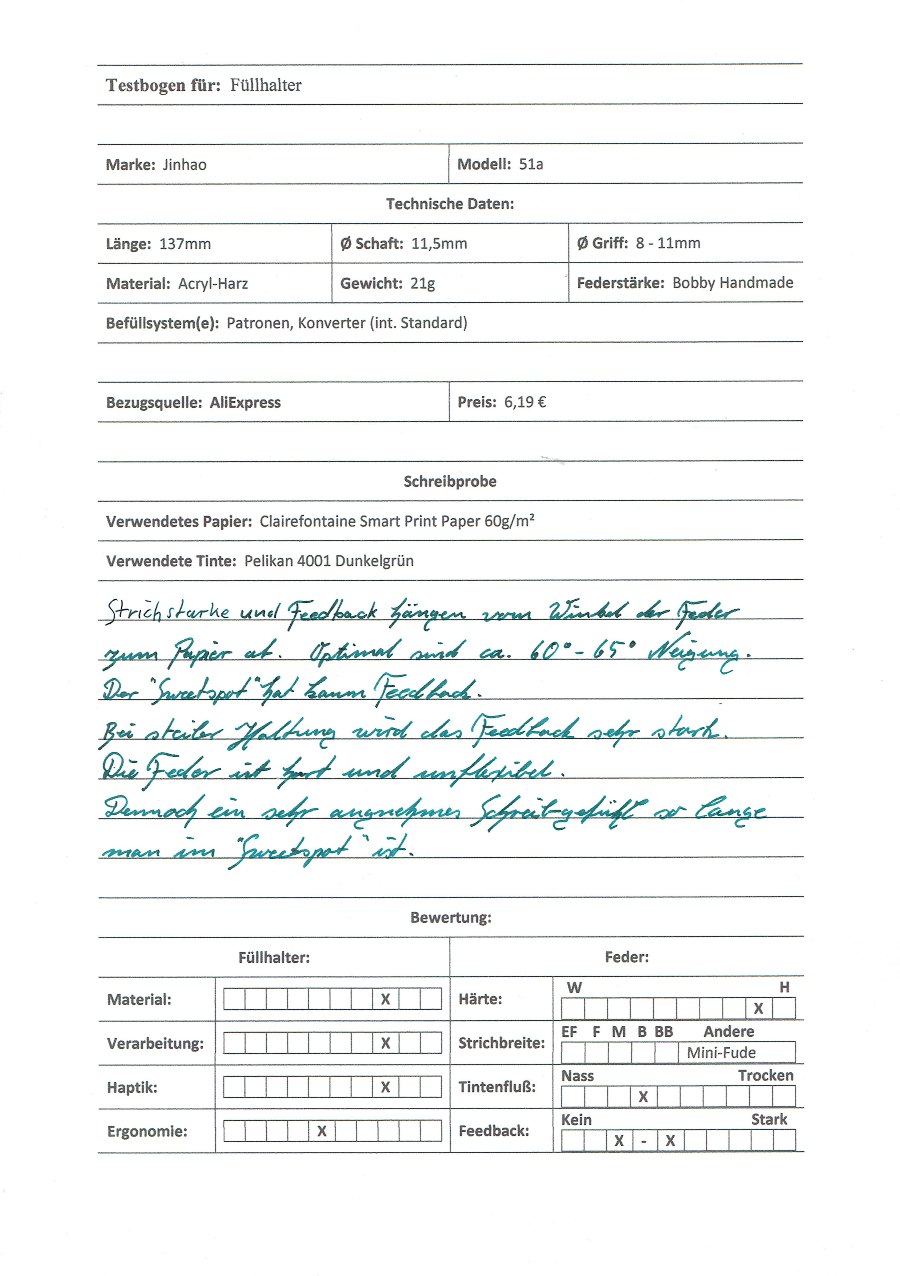 Testbogen für: Füllhalter
Marke: Jinhao Modell: 51a
Technische Daten:
Länge: 137mm Ø Schaft: 11,5mm Ø Griff: 8 - 11mm
Material: Acryl-Harz Gewicht: 21g Federstärke: Bobby Handmade
Befüllsystem(e): Patronen, Konverter (int. Standard)
Bezugsquelle: AliExpress Preis: 6,19 €
Schreibprobe
Verwendetes Papier: Clairefontaine Smart Print Paper 60g/m²
Verwendete Tinte: Pelikan 4001 Dunkelgrün
Strichstärke und Feedback hängen vom Winkel der Feder
zum Papier ab. Optimal sind ca. 60° - 65° Neigung.
Der "Sweetspot" hat kaum Feedback.
Bei steiler Haltung wird das Feedback sehr stark.
Die Feder ist hart und unflexibel.
Dennoch ein sehr angnehmes Schreibgefühl so lange
man im "Sweetspot" ist.
Bewertung:
Füllhalter: Feder:
Material: X Härte: W H X
Verarbeitung: X Strichbreite: EF F M B BB Andere Mini-Fude
Haptik: X Tintenfluß: Nass Trocken X
Ergonomie: X Feedback: Kein Stark X - X